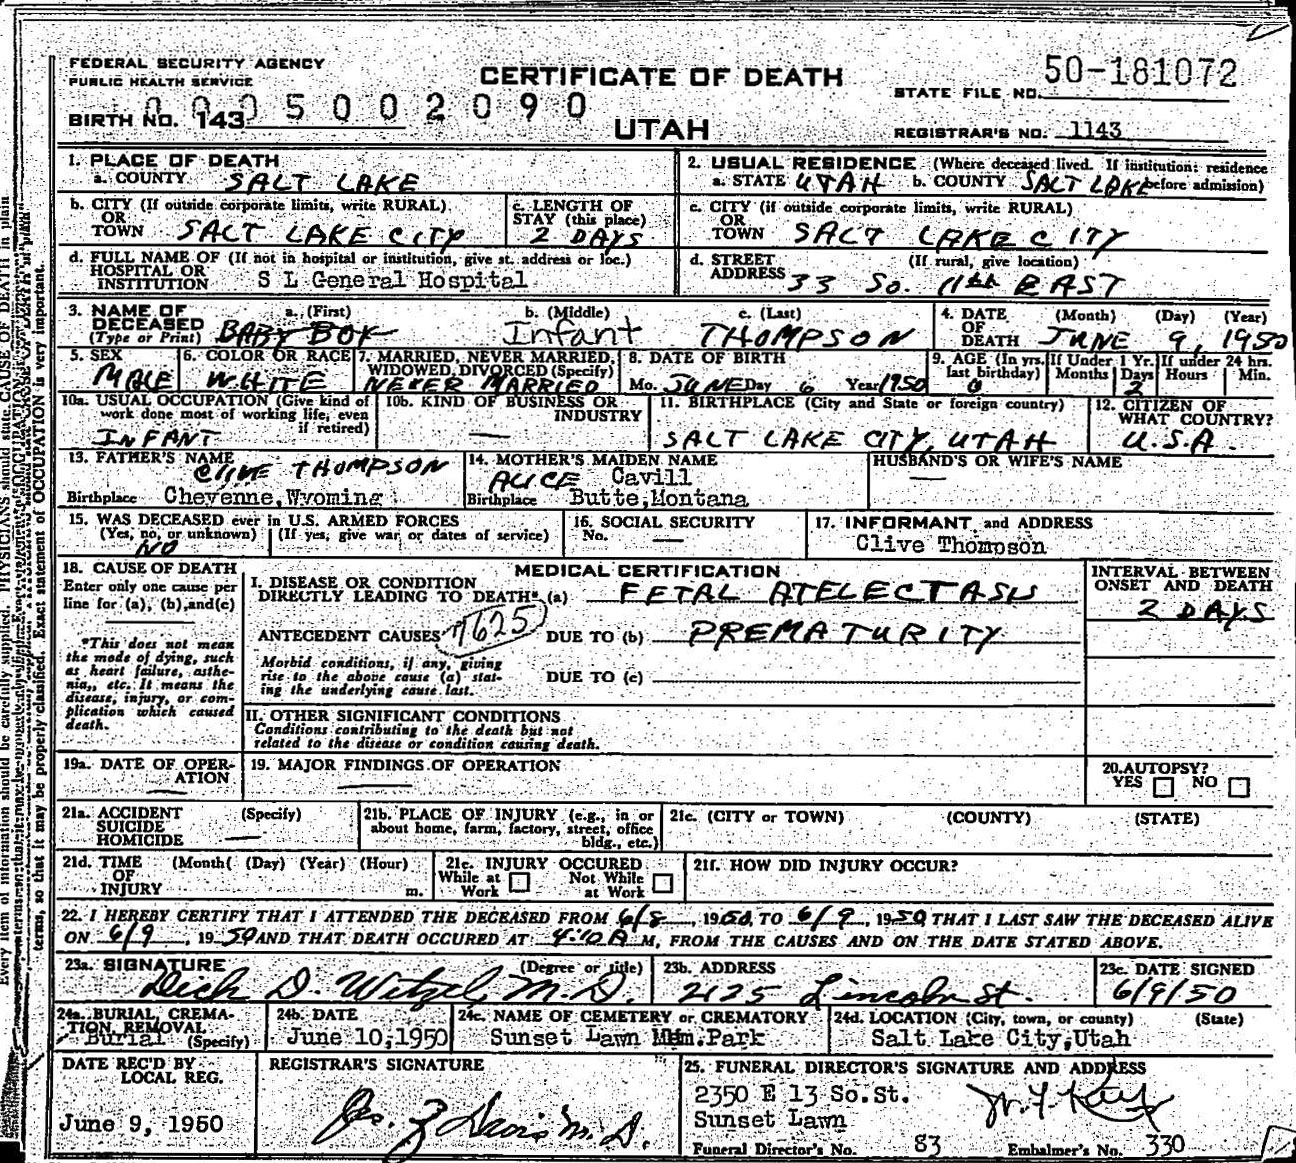 FEDERAL SECURITY AGENCY
PUBLIC HEALTH SERVICE
CERTIFICATE OF DEATH
50-181072
STATE FILE NO.
0005002090
BIRTH NO. 143
UTAH
REGISTRAR'S NO. 1143
1. PLACE OF DEATH
a. COUNTY SALT LAKE
2. USUAL RESIDENCE (Where deceased lived. If institution: residence before admission)
a. STATE UTAH b. COUNTY SALT LAKE
b. CITY (If outside corporate limits, write RURAL)
OR
TOWN SALT LAKE CITY
c. LENGTH OF
STAY (this place)
2 DAYS
c. CITY (if outside corporate limits, write RURAL)
OR
TOWN SALT LAKE CITY
d. FULL NAME OF (If not in hospital or institution, give st. address or loc.)
HOSPITAL OR
INSTITUTION S L General Hospital
d. STREET (If rural, give location)
ADDRESS 33 So. 11th EAST
3. NAME OF DECEASED (Type or Print)
a. (First) b. (Middle) c. (Last)
BABY BOY Infant THOMPSON
4. DATE OF DEATH (Month) (Day) (Year)
JUNE 9, 1950
5. SEX
MALE
6. COLOR OR RACE
WHITE
7. MARRIED, NEVER MARRIED,
WIDOWED, DIVORCED (Specify)
NEVER MARRIED
8. DATE OF BIRTH
Mo. JUNE Day 6 Year 1950
9. AGE (In yrs. last birthday) 0
If Under 1 Yr. Months Days 2
If under 24 hrs. Hours Min.
10a. USUAL OCCUPATION (Give kind of
work done most of working life, even
if retired)
INFANT
10b. KIND OF BUSINESS OR
INDUSTRY
—
11. BIRTHPLACE (City and State or foreign country)
SALT LAKE CITY, UTAH
12. CITIZEN OF
WHAT COUNTRY?
U.S.A.
13. FATHER'S NAME
CLIVE THOMPSON
Birthplace Cheyenne,Wyoming
14. MOTHER'S MAIDEN NAME
ALICE Cavill
Birthplace Butte,Montana
HUSBAND'S OR WIFE'S NAME
—
15. WAS DECEASED ever in U.S. ARMED FORCES
(Yes, no, or unknown) (If yes, give war or dates of service)
NO
16. SOCIAL SECURITY
No. —
17. INFORMANT and ADDRESS
Clive Thompson
18. CAUSE OF DEATH
Enter only one cause per
line for (a), (b),and(c)
*This does not mean
the mode of dying, such
as heart failure, asthe-
nia,, etc. It means the
disease, injury, or com-
plication which caused
death.
MEDICAL CERTIFICATION
I. DISEASE OR CONDITION
DIRECTLY LEADING TO DEATH* (a) FETAL ATELECTASIS
ANTECEDENT CAUSES 7625 DUE TO (b) PREMATURITY
Morbid conditions, if any, giving
rise to the above cause (a) stat-
ing the underlying cause last.
DUE TO (c)
II. OTHER SIGNIFICANT CONDITIONS
Conditions contributing to the death but not
related to the disease or condition causing death.
INTERVAL BETWEEN
ONSET AND DEATH
2 DAYS
19a. DATE OF OPER-
ATION
—
19. MAJOR FINDINGS OF OPERATION
—
20.AUTOPSY?
YES NO
21a. ACCIDENT (Specify)
SUICIDE
HOMICIDE —
21b. PLACE OF INJURY (e.g., in or
about home, farm, factory, street, office
bldg., etc.)
21c. (CITY or TOWN) (COUNTY) (STATE)
21d. TIME (Month( (Day) (Year) (Hour)
OF
INJURY m.
21e. INJURY OCCURED
While at Work Not While at Work
21f. HOW DID INJURY OCCUR?
22. I HEREBY CERTIFY THAT I ATTENDED THE DECEASED FROM 6/8, 1950, TO 6/9, 1950 THAT I LAST SAW THE DECEASED ALIVE
ON 6/9, 1950 AND THAT DEATH OCCURED AT 4:10 A M, FROM THE CAUSES AND ON THE DATE STATED ABOVE.
23a. SIGNATURE (Degree or title)
Dick D. Witzel, M.D.
23b. ADDRESS
2125 Lincoln St.
23c. DATE SIGNED
6/9/50
24a. BURIAL, CREMA-
TION, REMOVAL
Burial (Specify)
24b. DATE
June 10,1950
24c. NAME OF CEMETERY or CREMATORY
Sunset Lawn Mem.Park
24d. LOCATION (City, town, or county) (State)
Salt Lake City,Utah
DATE REC'D BY
LOCAL REG.
June 9, 1950
REGISTRAR'S SIGNATURE
25. FUNERAL DIRECTOR'S SIGNATURE AND ADDRESS
2350 E 13 So.St.
Sunset Lawn
Funeral Director's No. 83 Embalmer's No. 330